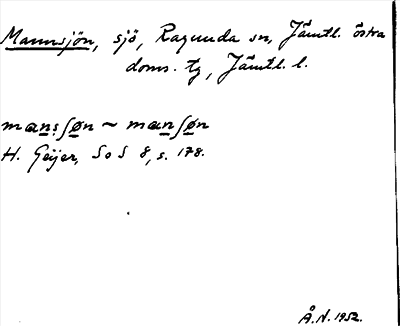 Mannsjön, sjö, Ragunda sn, Jämtl. östra
doms. tg, Jämtl. l.
man:ʃøn ~ manʃøn
H. Geijer, SoS 8, s. 178.
Å.N. 1952.